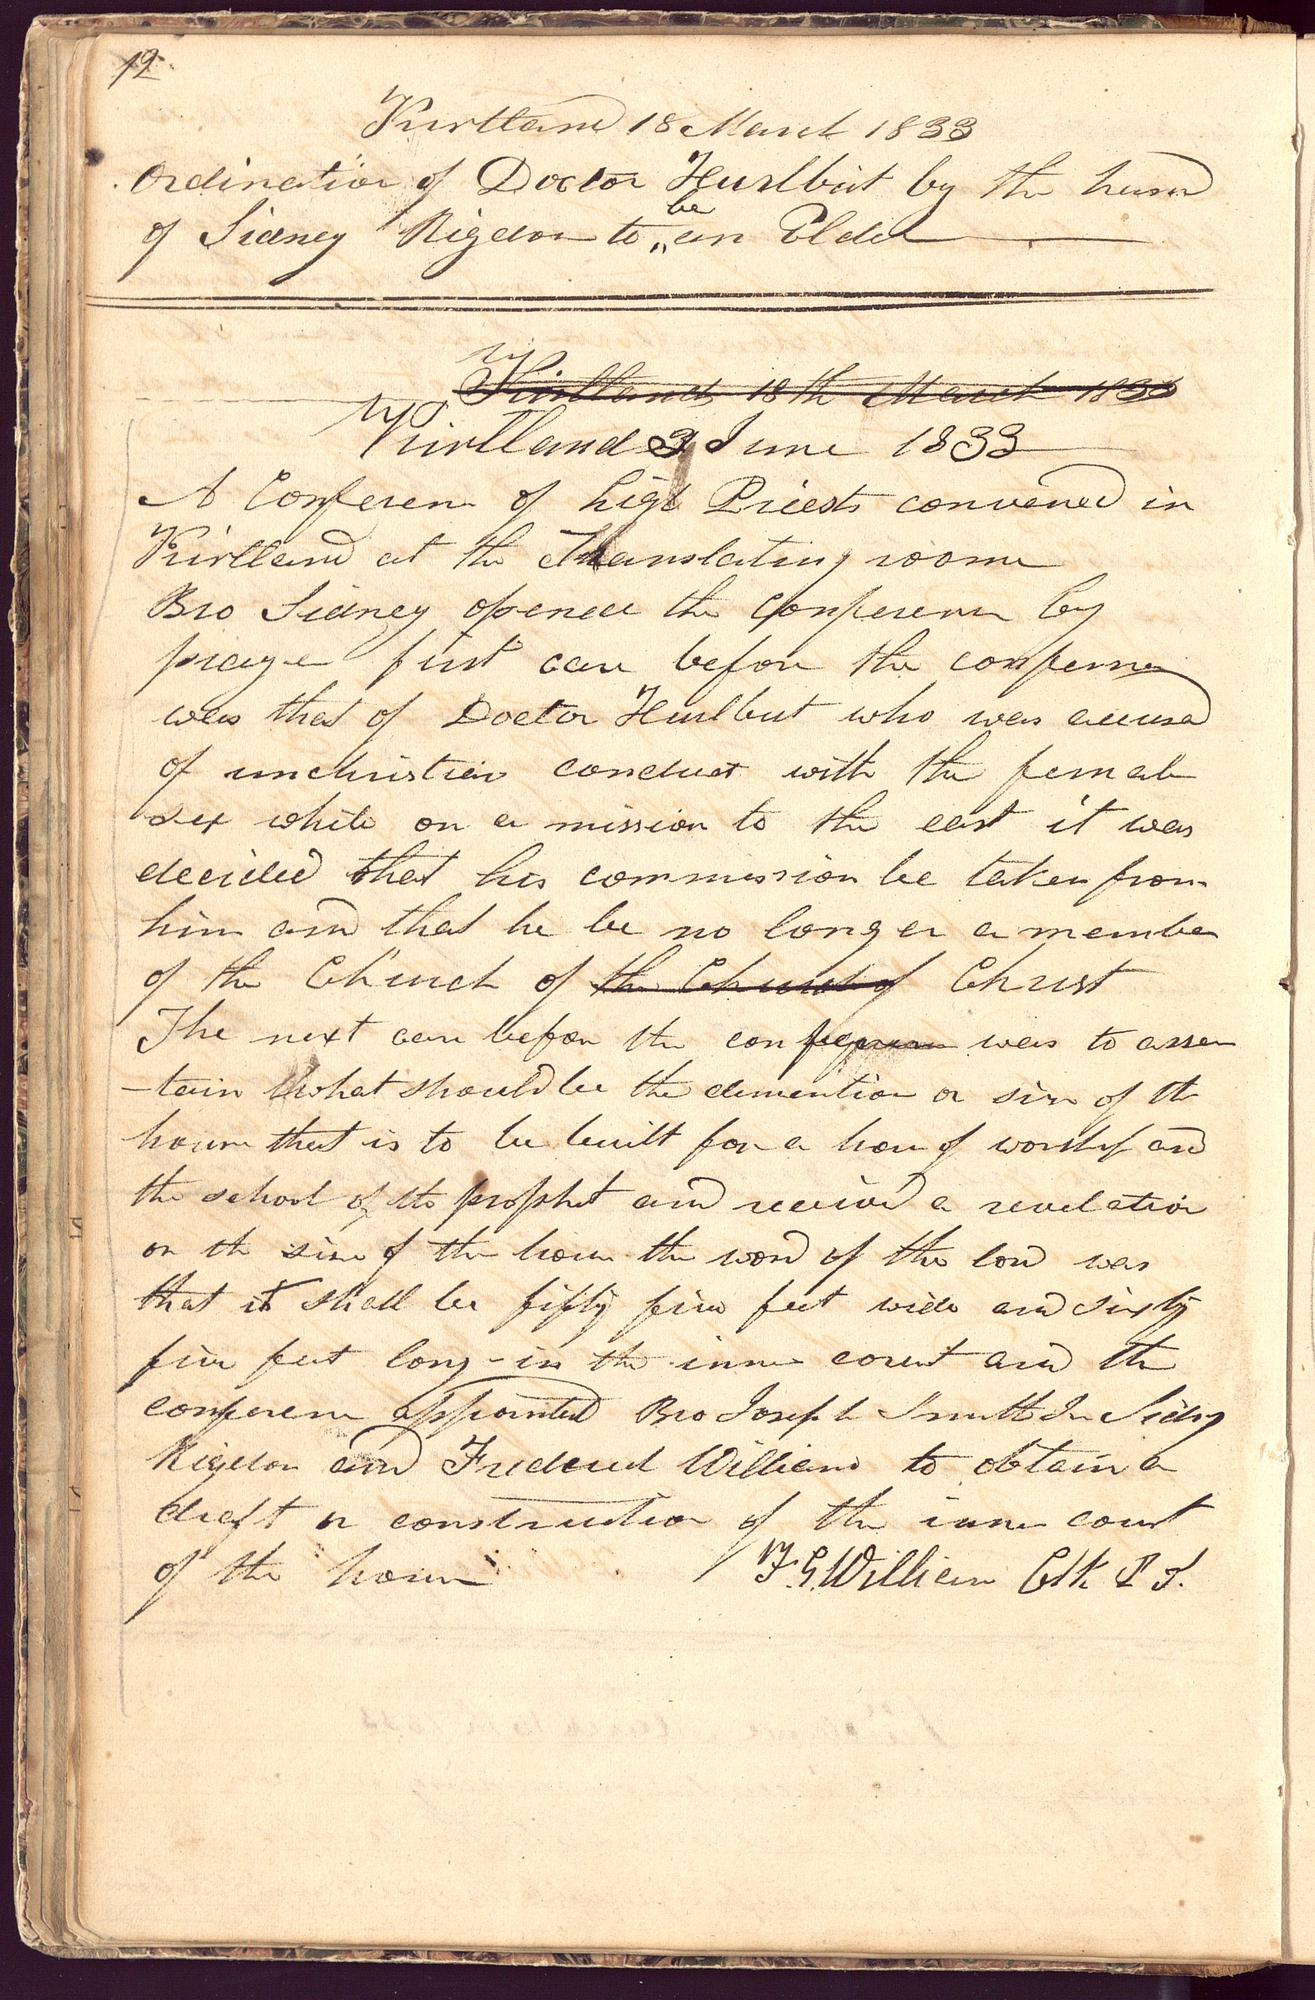 12
Kirtland 18 March 1833
Ordination of Doctor Hurlbut by the hand
of Sidney Rigdon to be an Elder
Kirtland 18th March 1833
Kirtland 3 June 1833
A Conferenc of high Priests convened in
Kirtland at the Translating room
Bro Sidney opened the Conferenc by
prayer first case before the conference
was that of Doctor Hurlbut who was accused
of unchristian conduct with the female
sex while on a mission to the east it was
decided that his commission be taken from
him and that he be no longer a member
of the Church of the Church of Christ
The next case before the conference was to asser
-tain what should be the demention or size of the
house that is to be built for a house of worship and
the school of the prophet and received a revelation
on the size of the house the word of the lord was
that it shall be fifty five feet wide and sixty
five feet long - in the inner court and the
conference appointed Bro Joseph Smith Jr Sidny
Rigdon and Frederick Williams to obtain a
draft or construction of the inner court
of the house F. G. Williams Clk P. T.